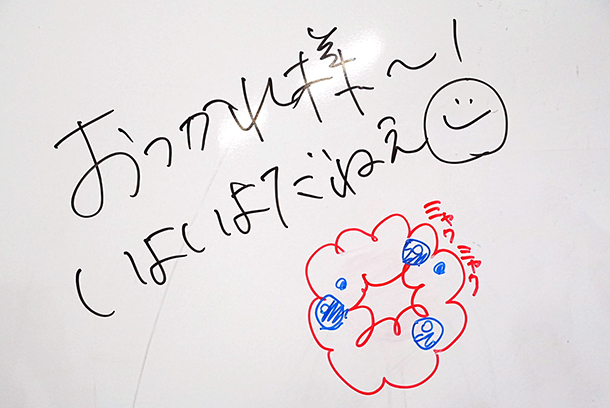 おつかれ様〜！
いよいよだねえ
ミャク
ミャク